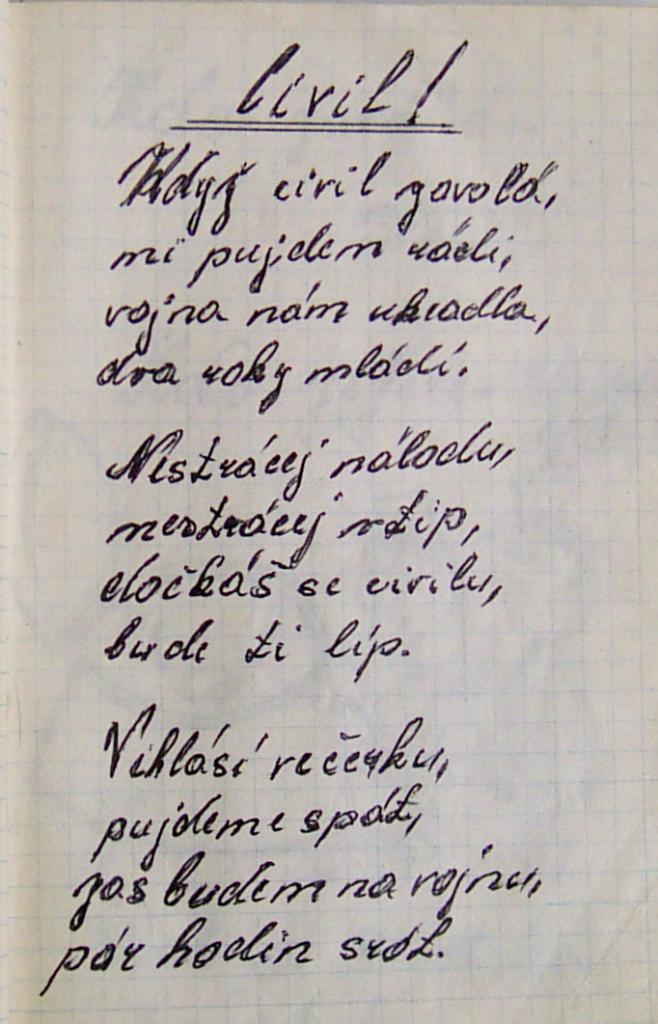 Civil!
Když civil zavolá,
mi pujdem rádi,
vojna nám ukradla,
dva roky mládí.
Neztrácej náladu,
neztrácej vtip,
dočkáš se civilu,
bude ti líp.
Vihlásí večerku,
pujdeme spát,
zas budem na vojnu,
pár hodin srát.